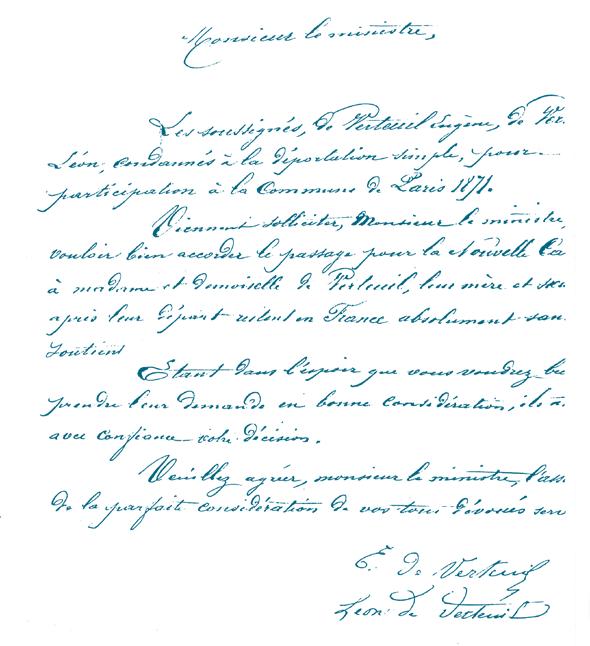 Monsieur le ministre,
Les soussignés, de Verteuil Eugène, de Ver.
Léon, condannés à la déportation simple, pour
participation à la Commune de Paris 1871.
Viennent solliciter, Monsieur le ministre,
vouloir bien accorder le passage pour la Nouvelle Ca
à madame et demoiselle de Verteuil, leur mère et sœu
après leur départ restent en France absolument san
soutient
Etant dans l'espoir que vous voudrez bie
prendre leur demande en bonne considération, ils a
avec confiance votre décision.
Veuillez agréer, monsieur le ministre, l'ass
de la parfait considération de vos tous dévoués serv
E. de Verteuil
Léon de Verteuil